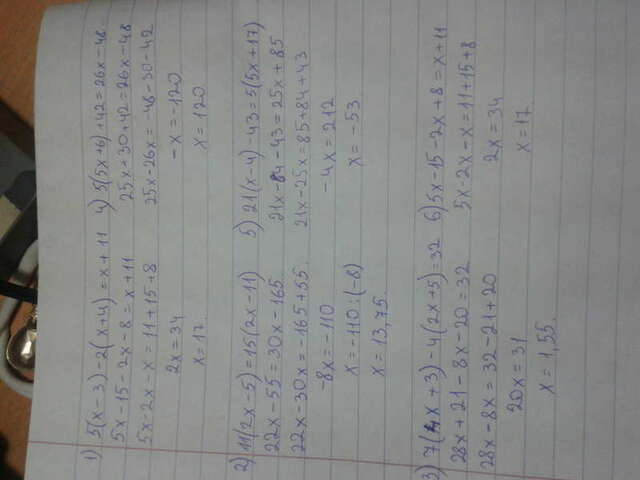 1) 5(x-3)-2(x+4)=x+11
5x-15-2x-8=x+11
5x-2x-x=11+15+8
2x=34
x=17.
2) 11(2x-5)=15(2x-11)
22x-55=30x-165
22x-30x=-165+55.
-8x=-110
x=-110:(-8)
x=13,75.
3) 7(4x+3)-4(2x+5)=32
28x+21-8x-20=32
28x-8x=32-21+20
20x=31
x=1,55.
4) 5(5x+6)+42=26x-48
25x+30+42=26x-48
25x-26x=-48-30-42
-x=-120
x=120
5) 21(x-4)-43=5(5x+17)
21x-84-43=25x+85
21x-25x=85+84+43
-4x=212
x=-53
6) 5x-15-2x+8=x+11
5x-2x-x=11+15+8
2x=34
x=17.